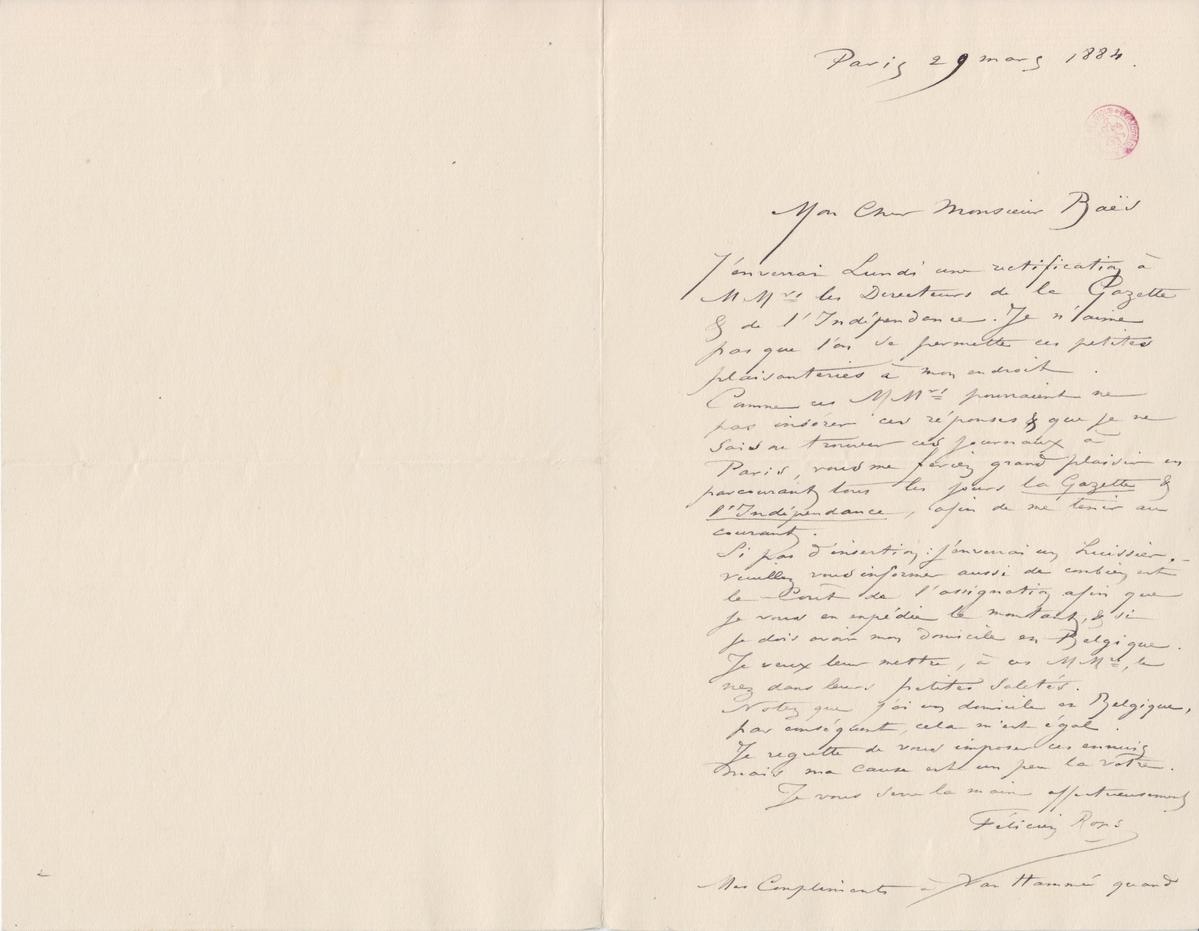 Paris 29 mars 1884.
Mon Cher Monsieur Baës
J'enverrai Lundi une rectification à
MMrs les Directeurs de la Gazette
& de l'Indépendance. Je n'aime
pas que l'on se permette ces petites
plaisanteries à mon endroit.
Comme ces MMrs pourraient ne
pas insérer ces réponses & que je ne
sais où trouver ces journaux à
Paris, vous me feriez grand plaisir en
parcourant tous les jours la Gazette &
l'Indépendance, afin de me tenir au
courant.
Si pas d'insertion: j'enverrai un huissier.–
veuillez vous informer aussi de combien est
le Coût de l'assignation afin que
je vous en expédie le montant, & si
je dois avoir mon domicile en Belgique.
Je veux leur mettre, à ces MMrs, le
nez dans leurs petites saletés.
Notez que j'ai un domicile en Belgique,
par conséquent, cela m'est égal.
Je regrette de vous imposer ces ennuis
mais ma cause est un peu la vôtre.
Je vous serre la main affectueusement
Félicien Rops
Mes Compliments à Van Hammée quand